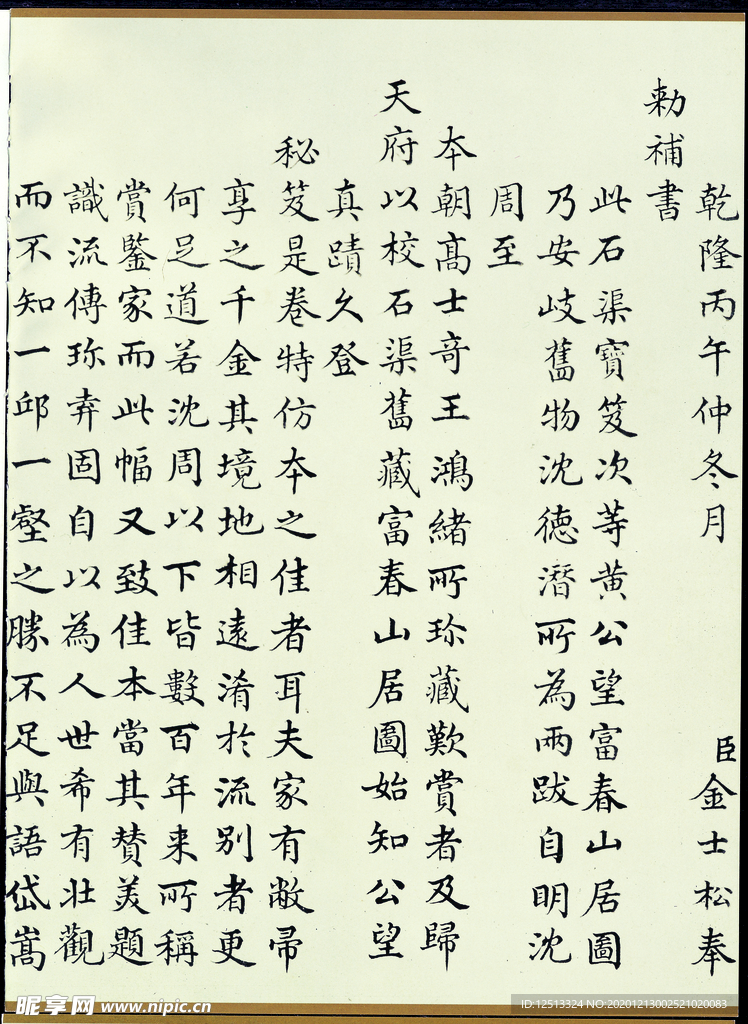 乾隆丙午仲冬月 臣金士松奉
勅補書
此石渠寶笈次等黃公望富春山居圖
乃安岐舊物沈德潛所為兩跋自明沈
周至
本朝高士奇王鴻緒所珍藏歎賞者及歸
天府以校石渠舊藏富春山居圖始知公望
真蹟久登
秘笈是卷特仿本之佳者耳夫家有敝帚
享之千金其境地相遠淆於流別者更
何足道若沈周以下皆數百年来所稱
賞鑒家而此幅又致佳本當其贊美題
識流傳珎弆固自以為人世希有壯觀
而不知一邱一壑之勝不足與語岱嵩
昵享网 www.nipic.cn
ID:12513324 NO:20201213002521020083